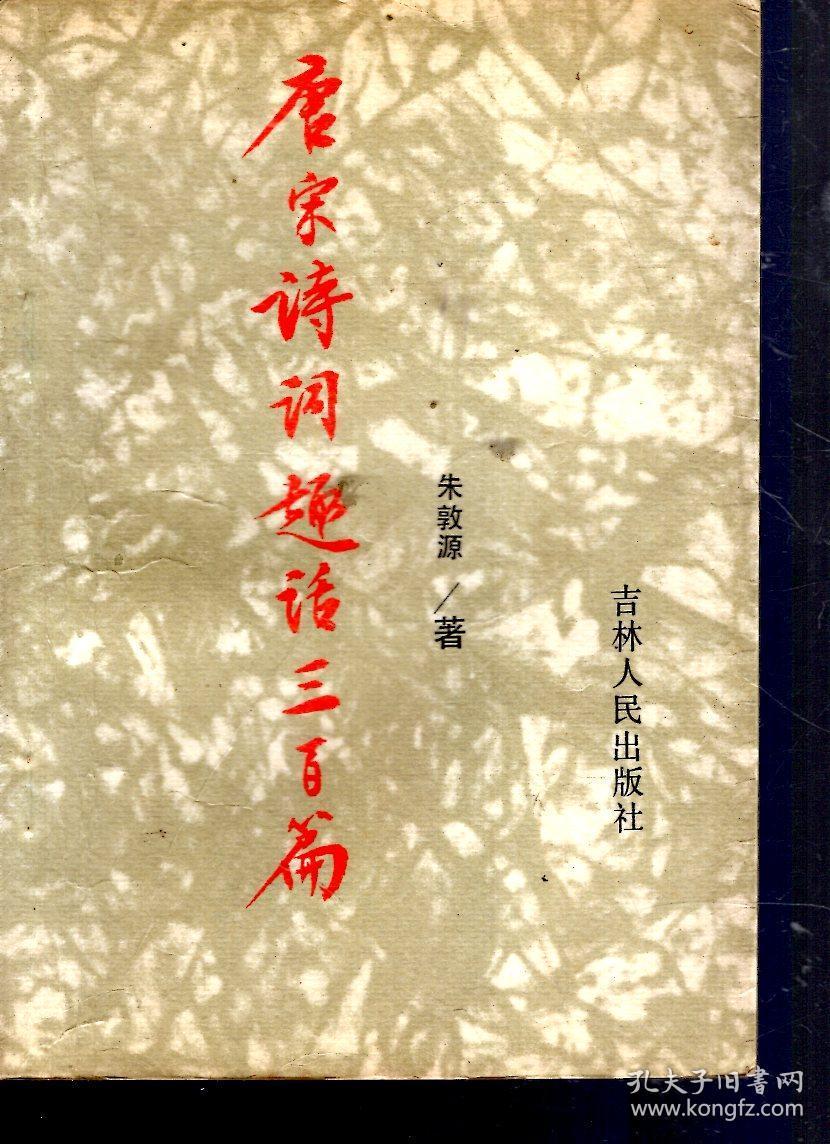 唐宋诗词趣话三百篇
朱敦源／著
吉林人民出版社
孔夫子旧書网
www.kongfz.com